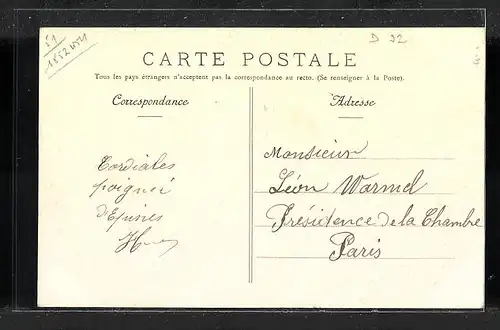 D 92
CARTE POSTALE
Tous les pays étrangers n'acceptent pas la correspondance au recto. (Se renseigner à la Poste).
Correspondance
Adresse
Cordiales
poignée
d'Epines
Monsieur
Léon Warmel
Présidence de la Chambre
Paris